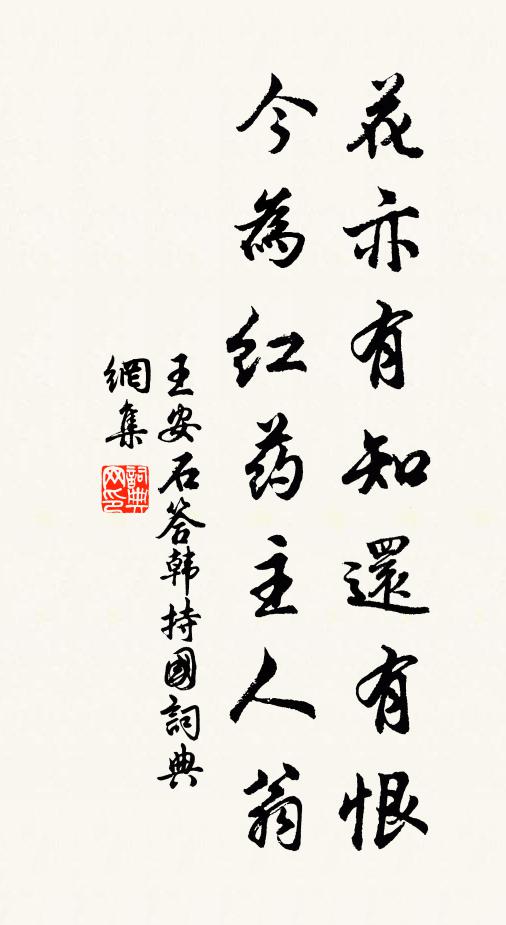 花亦有知還有恨
今為红药主人翁
王安石答韩持國詞典
網集
詞典
网印